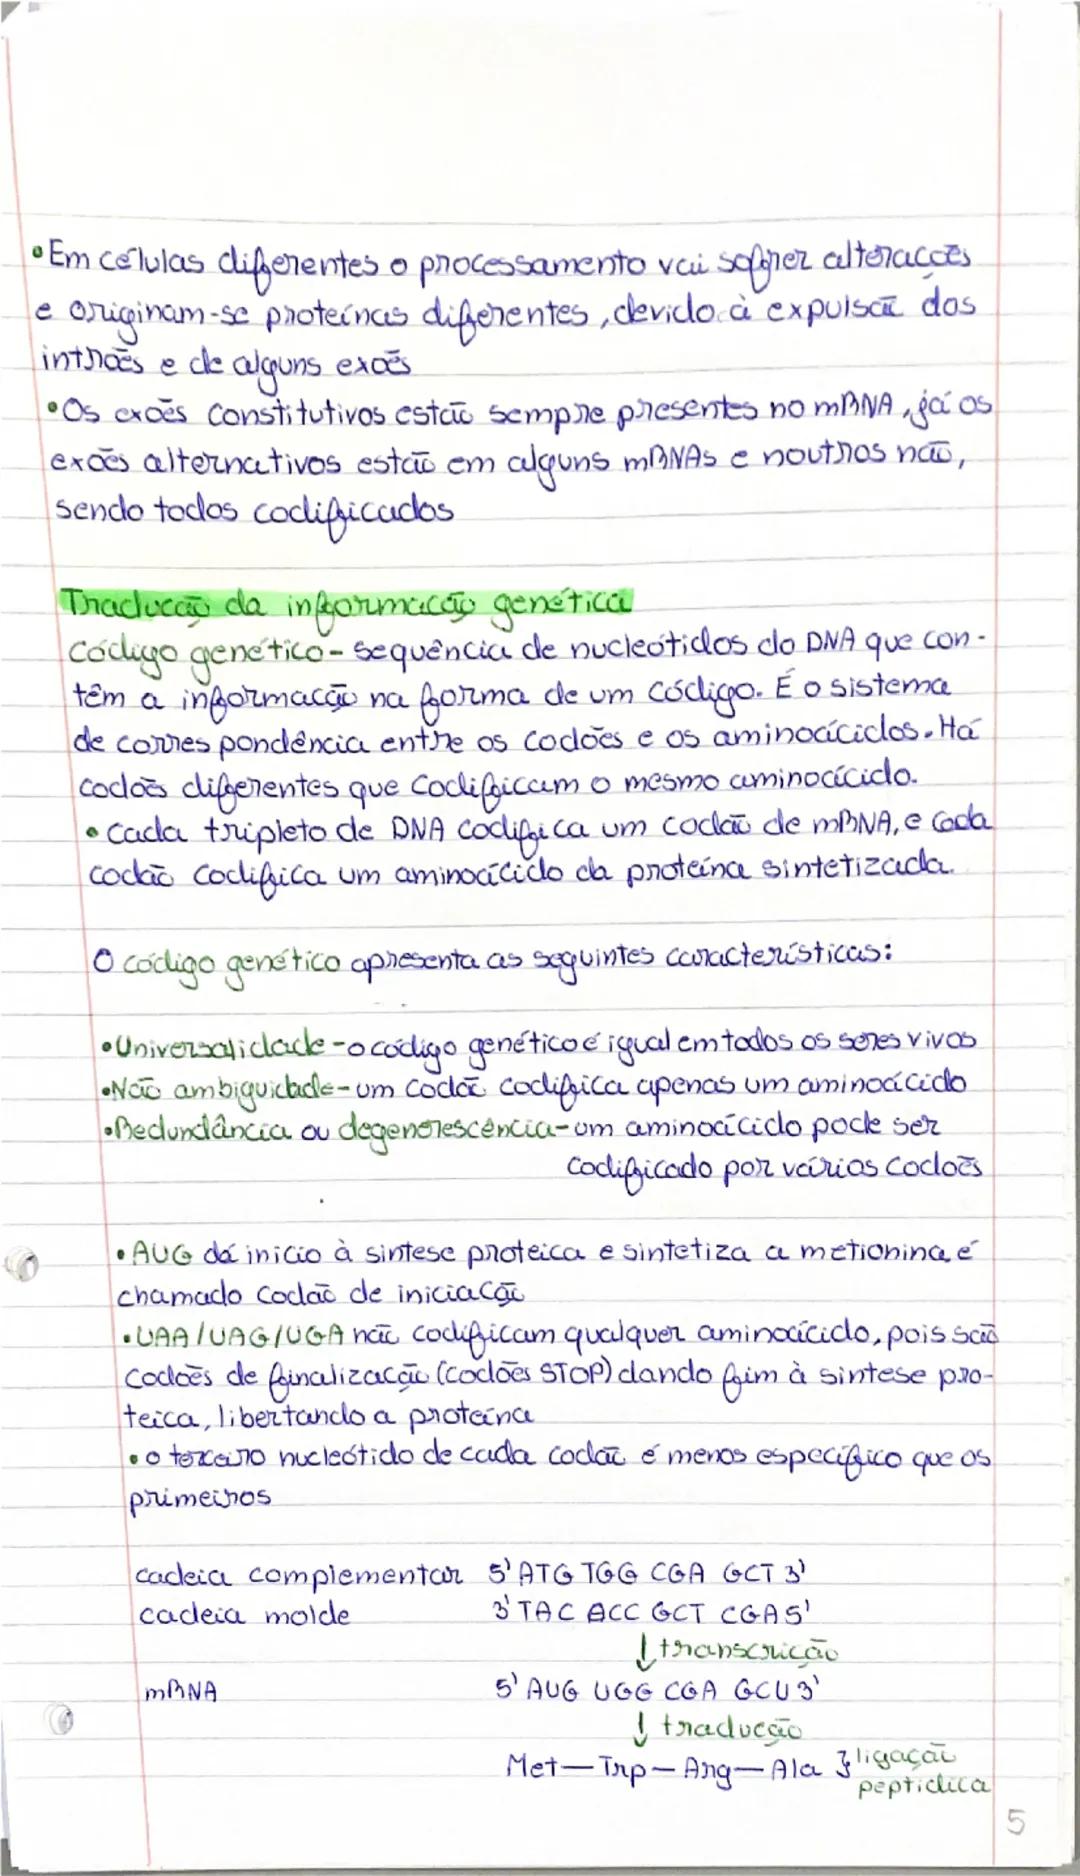 • Em células diferentes o processamento vai sofrer alterações
e originam-se proteínas diferentes, devido à expulsão dos
intrões e de alguns exões
• Os exões constitutivos estão sempre presentes no mRNA, já os
exões alternativos estão em alguns mRNAs e noutros não,
sendo todos codificados
Tradução da informação genética
código genético - sequência de nucleótidos do DNA que con-
têm a informação na forma de um código. É o sistema
de correspondência entre os codões e os aminoácidos. Há
codões diferentes que codificam o mesmo aminoácido.
• Cada tripleto de DNA codifica um codão de mRNA, e cada
codão codifica um aminoácido da proteína sintetizada.
O código genético apresenta as seguintes características:
• Universalidade - o código genético é igual em todos os seres vivos
• Não ambiguidade - um codão codifica apenas um aminoácido
• Redundância ou degenerescência - um aminoácido pode ser
codificado por vários codões
• AUG dá inicio à sintese proteica e sintetiza a metionina, é
chamado codão de iniciação
• UAA/UAG/UGA não codificam qualquer aminoácido, pois são
codões de finalização (codões STOP) dando fim à sintese pro-
teica, libertando a proteína
• o terceiro nucleótido de cada codão é menos específico que os
primeiros
cadeia complementar 5' ATG TGG CGA GCT 3'
cadeia molde 3' TAC ACC GCT CGA 5'
↓ transcrição
mRNA 5' AUG UGG CGA GCU 3'
↓ tradução
Met — Trp — Arg — Ala } ligação
peptídica
5